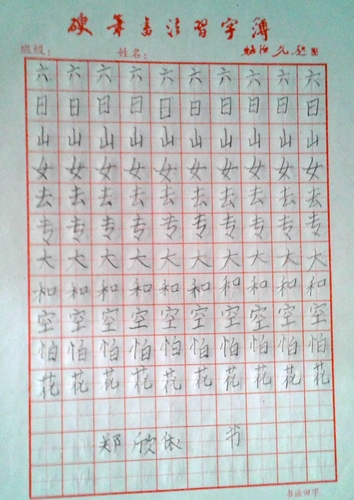 硬笔书法習字薄
班级： 姓名：
六 六 六 六 六 六 六 六 六 六
日 日 日 日 日 日 日 日 日 日
山 山 山 山 山 山 山 山 山 山
女 女 女 女 女 女 女 女 女 女
去 去 去 去 去 去 去 去 去 去
专 专 专 专 专 专 专 专 专 专
大 大 大 大 大 大 大 大 大 大
和 和 和 和 和 和 和 和 和 和
空 空 空 空 空 空 空 空 空 空
怕 怕 怕 怕 怕 怕 怕 怕 怕 怕
花 花 花 花 花 花 花 花 花 花
郑 欣 依 书